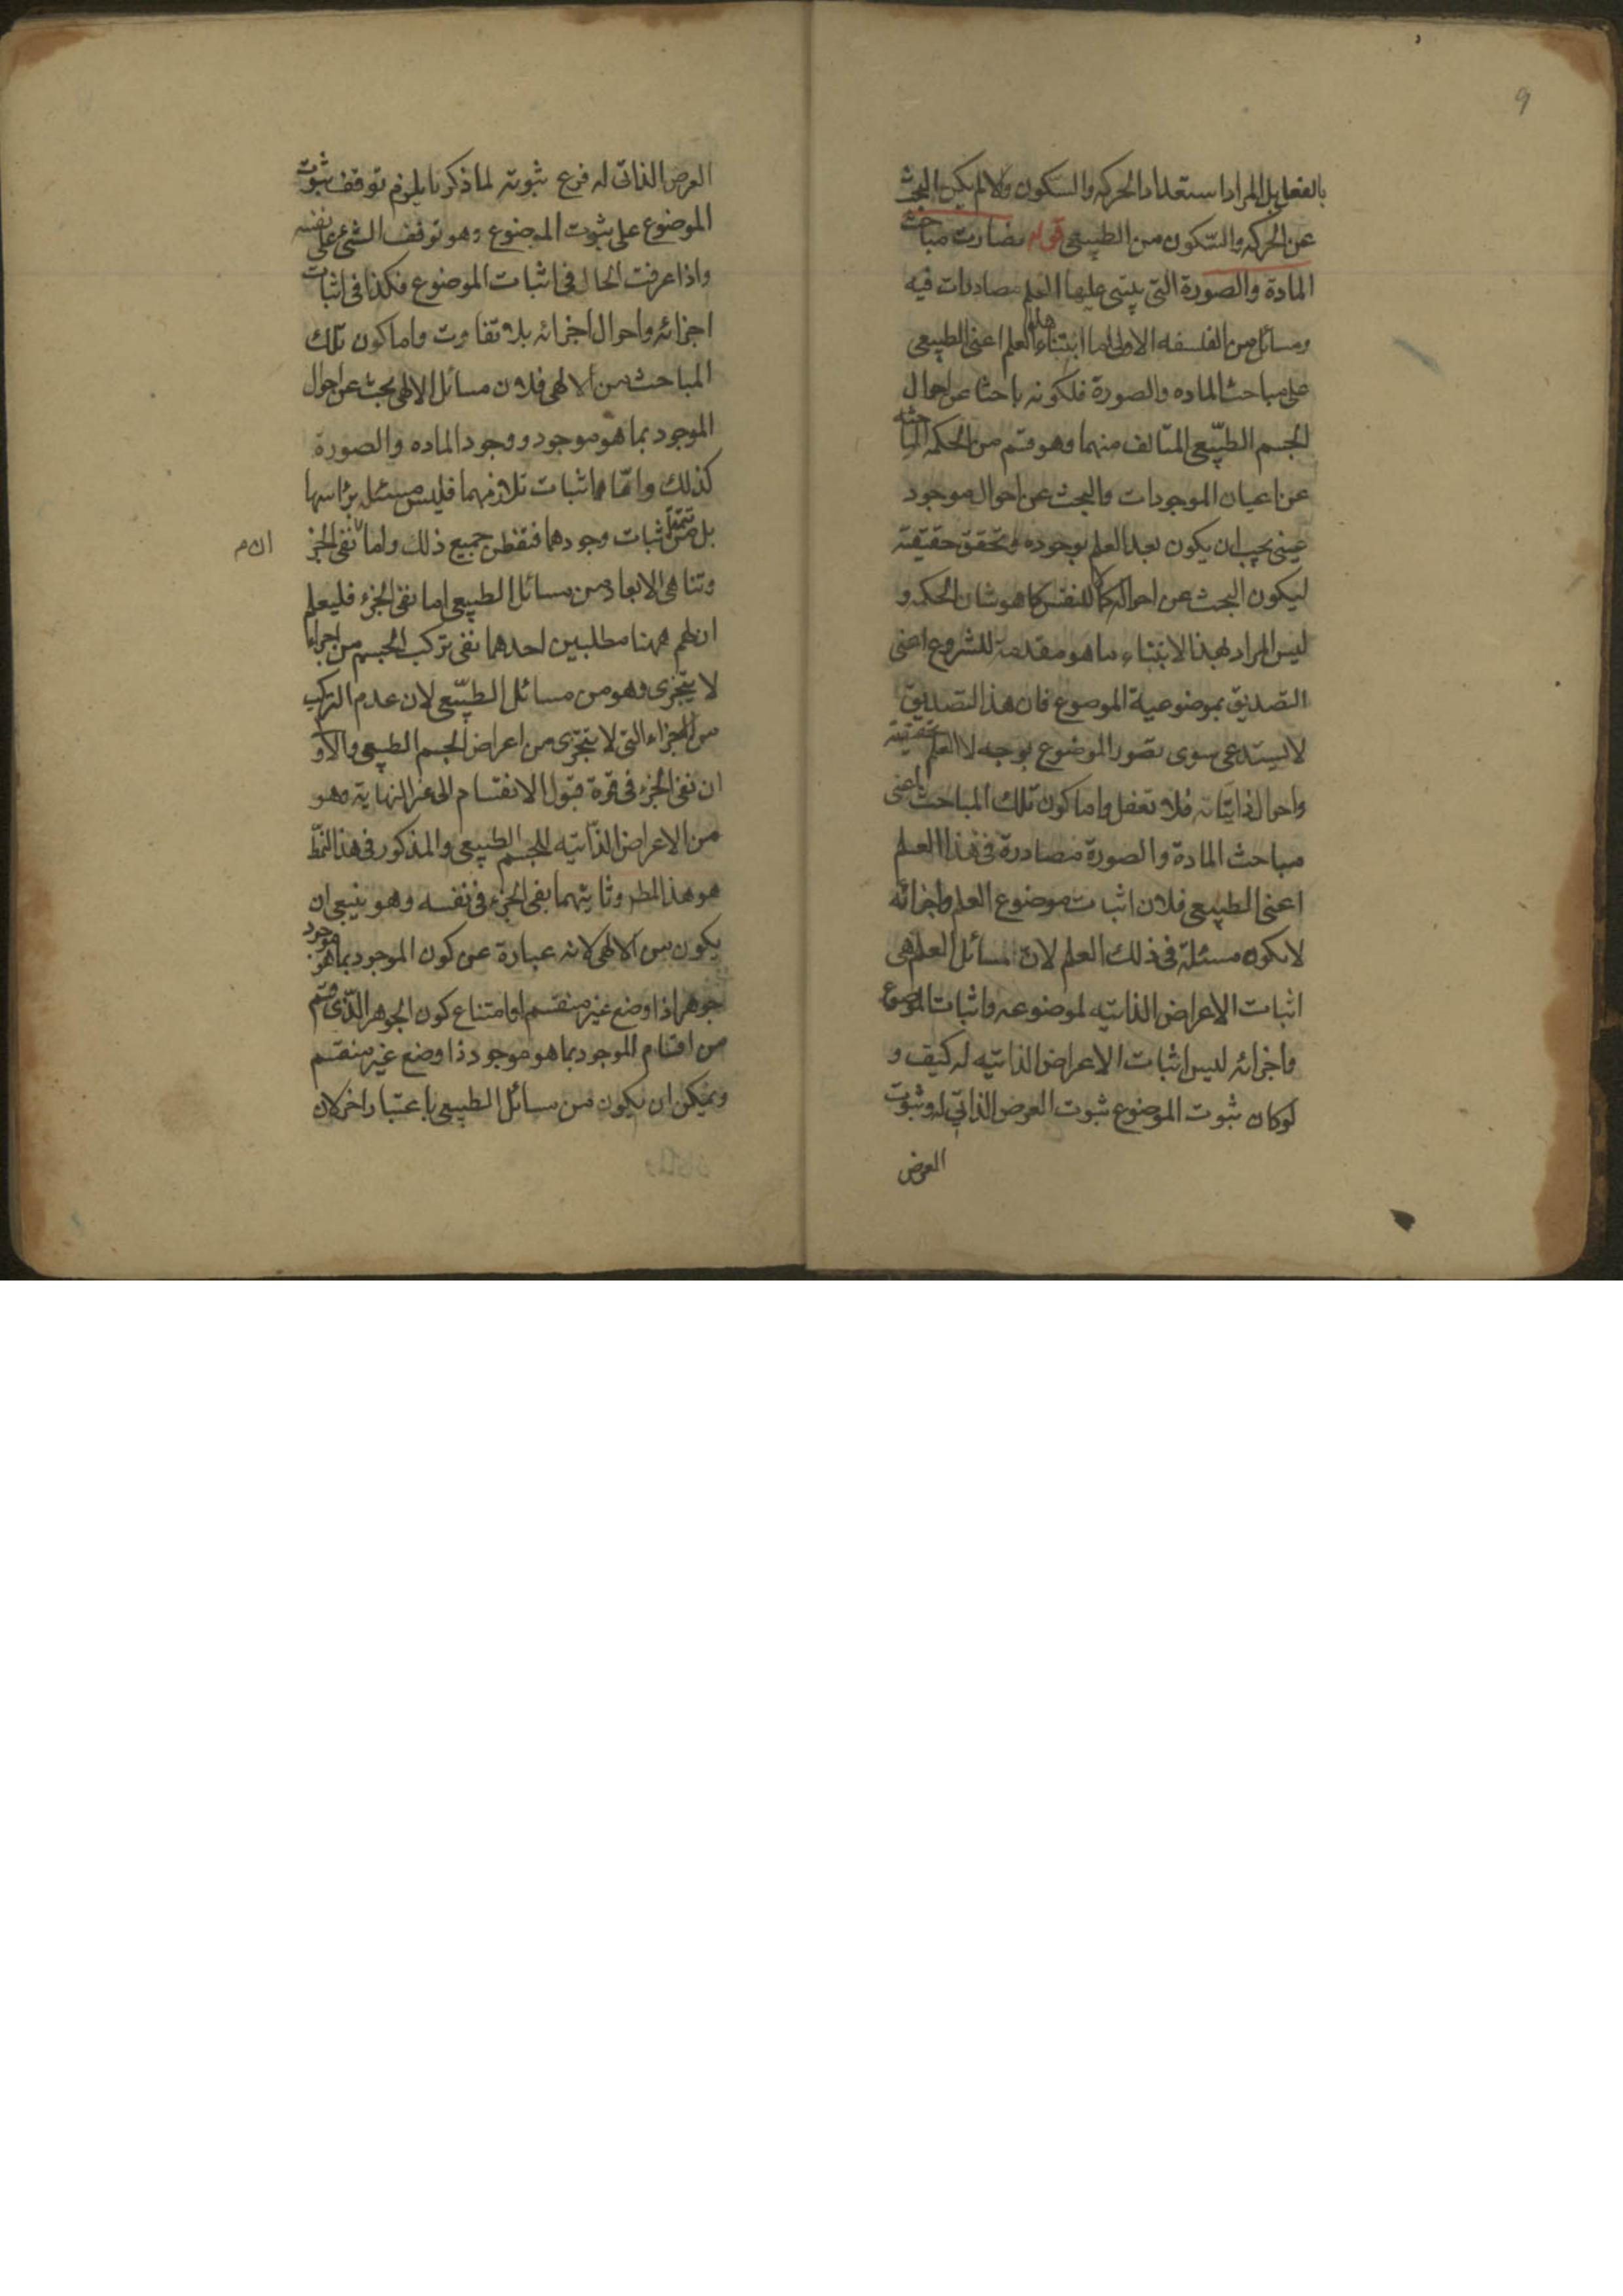 9
بالفعل بل المراد استعداد الحركه والسكون والا لم يكن البحث
عن الحركه والسّكون من الطبيعى قوله فصارت مباحث
المادة والصورة التى يبتنى عليها العلم مصادرات فيه
ومسائل من الفلسفه الاولى اما ابتناء هذا العلم اعنى الطبيعى
على مباحث الماده والصورة فلكونه باحثا عن احوال
الجسم الطبّيعى المتالف منهما وهو قسم من الحكمه الباحثه
عن اعيان الموجودات والبحث عن احوال موجود
عينى يجب ان يكون بعد العلم بوجوده وتحقق حقيقته
ليكون البحث عن احواله كمالا للنفس كما هو شان الحكمه و
ليس المراد بهذا الابتناء ما هو مقدمة للشروع اعنى
التصديق بموضوعية الموضوع فان هذا التصديق
لا يستدعى سوى تصور الموضوع بوجه لا العلم بحقيقته
واحوال ذاتياته فلا تغفل واما كون تلك المباحث اعنى
مباحث المادة والصورة مصادرة فى هذا العلم
اعنى الطبيعى فلان اثبات موضوع العلم واجزائه
لا يكون مسئلة فى ذلك العلم لان مسائل العلم هى
اثبات الاعراض الذاتيه لموضوعه واثبات الموضوع
واجزائه ليس اثبات الاعراض الذاتيه له كيف و
لو كان ثبوت الموضوع ثبوت العرض الذاتى له وثبوت
العرض
العرض الذاتى له فرع ثبوته لما ذكرنا يلزم توقف ثبوت
الموضوع على ثبوت الموضوع وهو توقف الشئ على نفسه
واذا عرفت الحال فى اثبات الموضوع فكذا فى اثبات
اجزائه واحوال اجزائه بلا تفاوت واما كون تلك
المباحث من الالهى فلان مسائل الالهى بحث عن احوال
الموجود بما هو موجود ووجود الماده والصورة
كذلك وامّا اثبات تلازمهما فليس مسئله براسها
بل من تتمة اثبات وجودهما فتفطن جميع ذلك واما نفى الجزء
وتناهى الابعاد من مسائل الطبيعى اما نفى الجزء فليعلم
ان لهم ههنا مطلبين احدهما نفى تركب الجسم من اجزاء
لا يتجزى وهو من مسائل الطبّيعى لان عدم التركب
من الاجزاء التى لا يتجزى من اعراض الجسم الطبيعى والاو
ان نفى الجزء فى قوة قبول الانقسام الى غير النهاية وهو
من الاعراض الذّاتيه للجسم الطبيعى والمذكور فى هذا النمط
هو هذا المط وثانيهما نفى الجزء فى نفسه وهو ينبغى ان
يكون من الالهى لانه عبارة عن كون الموجود بما هو موجود
جوهرا ذا وضع غير منقسم او امتناع كون الجوهر الّذى قسم
من اقسام الموجود بما هو موجود ذا وضع غير منقسم
ويمكن ان يكون من مسائل الطبيعى باعتبار اخر لان